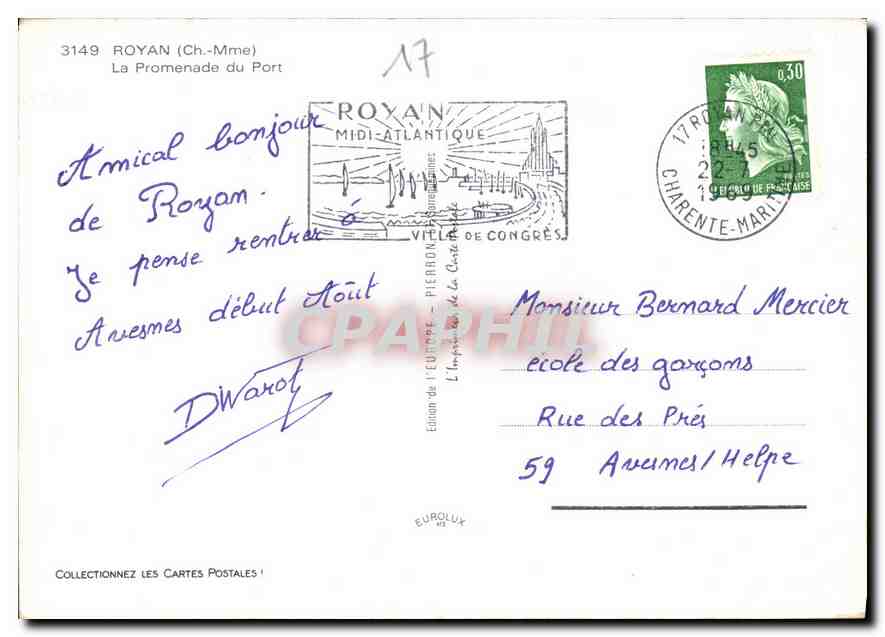 3149 ROYAN (Ch.-Mme)
La Promenade du Port
17
ROYAN
MIDI-ATLANTIQUE
VILLE DE CONGRÈS
0,30
RÉPUBLIQUE FRANÇAISE
17 ROYAN
18H45
22-7
1969
CHARENTE-MARITIME
Amical bonjour
de Royan.
Je pense rentrer à
Avesnes début Août
DWarot
Edition de l'EUROPE - PIERRON, Sarreguemines
L'Imprimeur de la Carte Postale
CPAPHIL
Monsieur Bernard Mercier
école des garçons
Rue des Prés
59 Avesnes/Helpe
EUROLUX
COLLECTIONNEZ LES CARTES POSTALES !